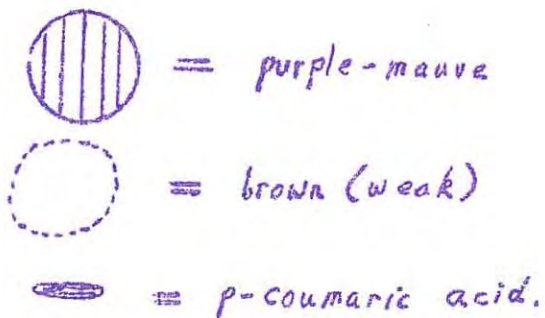 = purple-mauve
= brown (weak)
= p-coumaric acid.